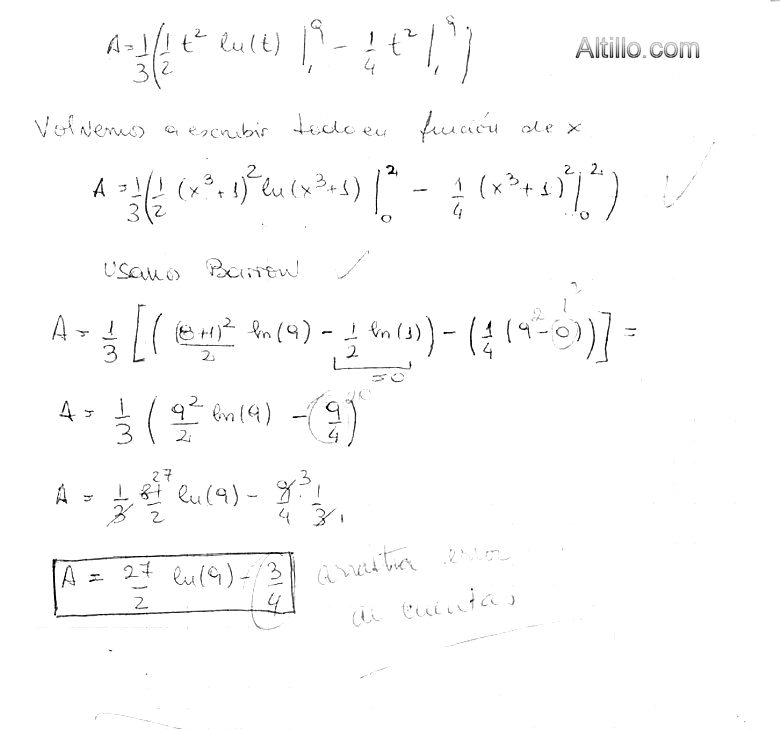 A = 1/3 ( 1/2 t² ln(t) |₁⁹ - 1/4 t² |₁⁹ )
Altillo.com
Volvemos a escribir todo en función de x
A = 1/3 ( 1/2 (x³+1)² ln(x³+1) |₀² - 1/4 (x³+1)² |₀² ) ✓
Usamos Barrow ✓
A = 1/3 [ ( (8+1)²/2 ln(9) - 1/2 ln(1) ) - ( 1/4 (9² - 0) ) ] =
1²
=0
A = 1/3 ( 9²/2 ln(9) - 9/4 )
20
A = 1/3 81/2 ln(9) - 9/4 · 1/3
27
3
A = 27/2 ln(9) - 3/4
arrastra error
de cuentas